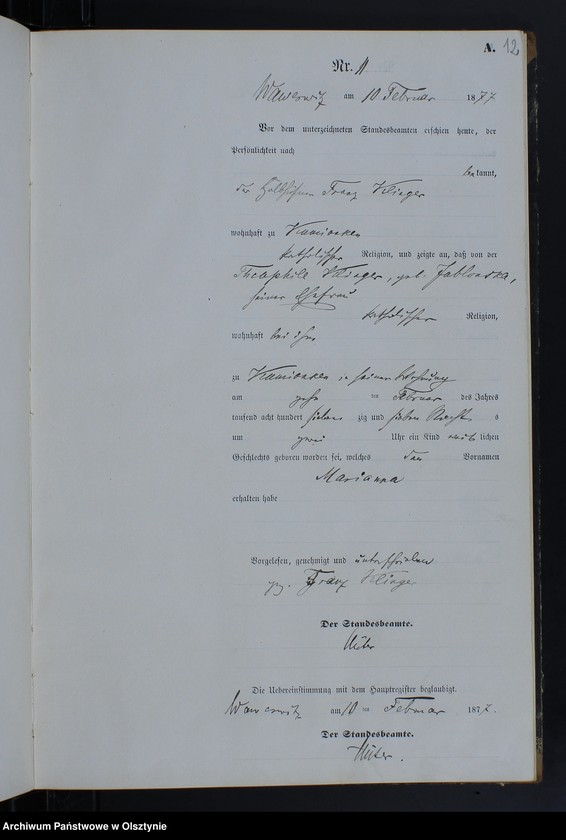 A. 12
Nr. 11
Wawerwitz am 10 Februar 1877
Vor dem unterzeichneten Standesbeamten erschien heute, der
Persönlichkeit nach
bekannt,
der Franz Klinger
wohnhaft zu Kamionken
katholischer Religion, und zeigte an, daß von der
Theophile Klinger, geb. Jablonska,
seiner Ehefrau
katholischer Religion,
wohnhaft bei ihm
zu Kamionken in seiner Wohnung
am ten Februar des Jahres
tausend acht hundert sieben zig und sieben Nachts
um zwei Uhr ein Kind weiblichen
Geschlechts geboren worden sei, welches den Vornamen
Marianna
erhalten habe
Vorgelesen, genehmigt und unterschrieben
gez. Franz Klinger
Der Standesbeamte.
Die Uebereinstimmung mit dem Hauptregister beglaubigt.
Wawerwitz am 10 ten Februar 1877.
Der Standesbeamte.
Archiwum Państwowe w Olsztynie